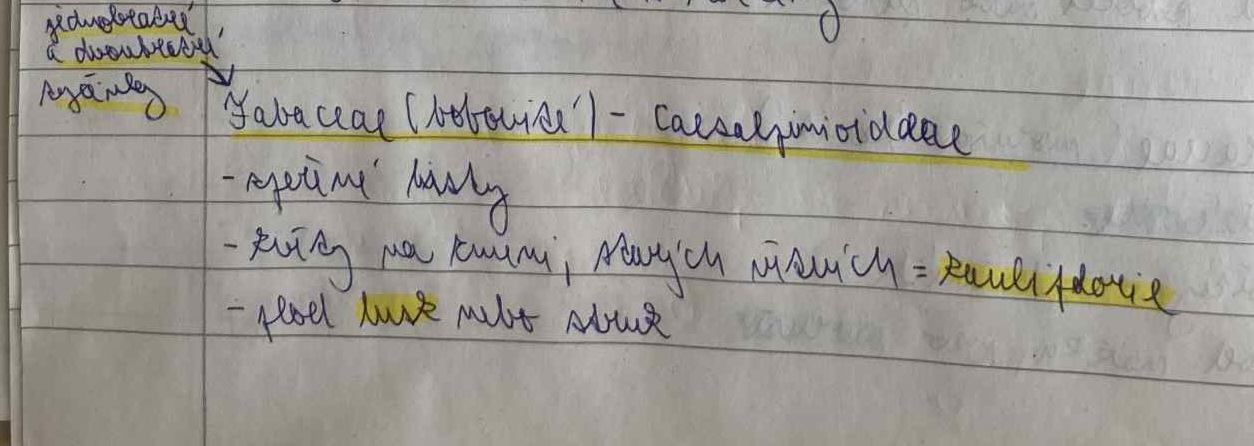 jednobratré
a dvoubratré
Fabaceae (bobovité) - Caesalpinioideae
- zpeřené listy
- květy na kmeni, starých větvích = kauliflorie
- plod lusk nebo struk